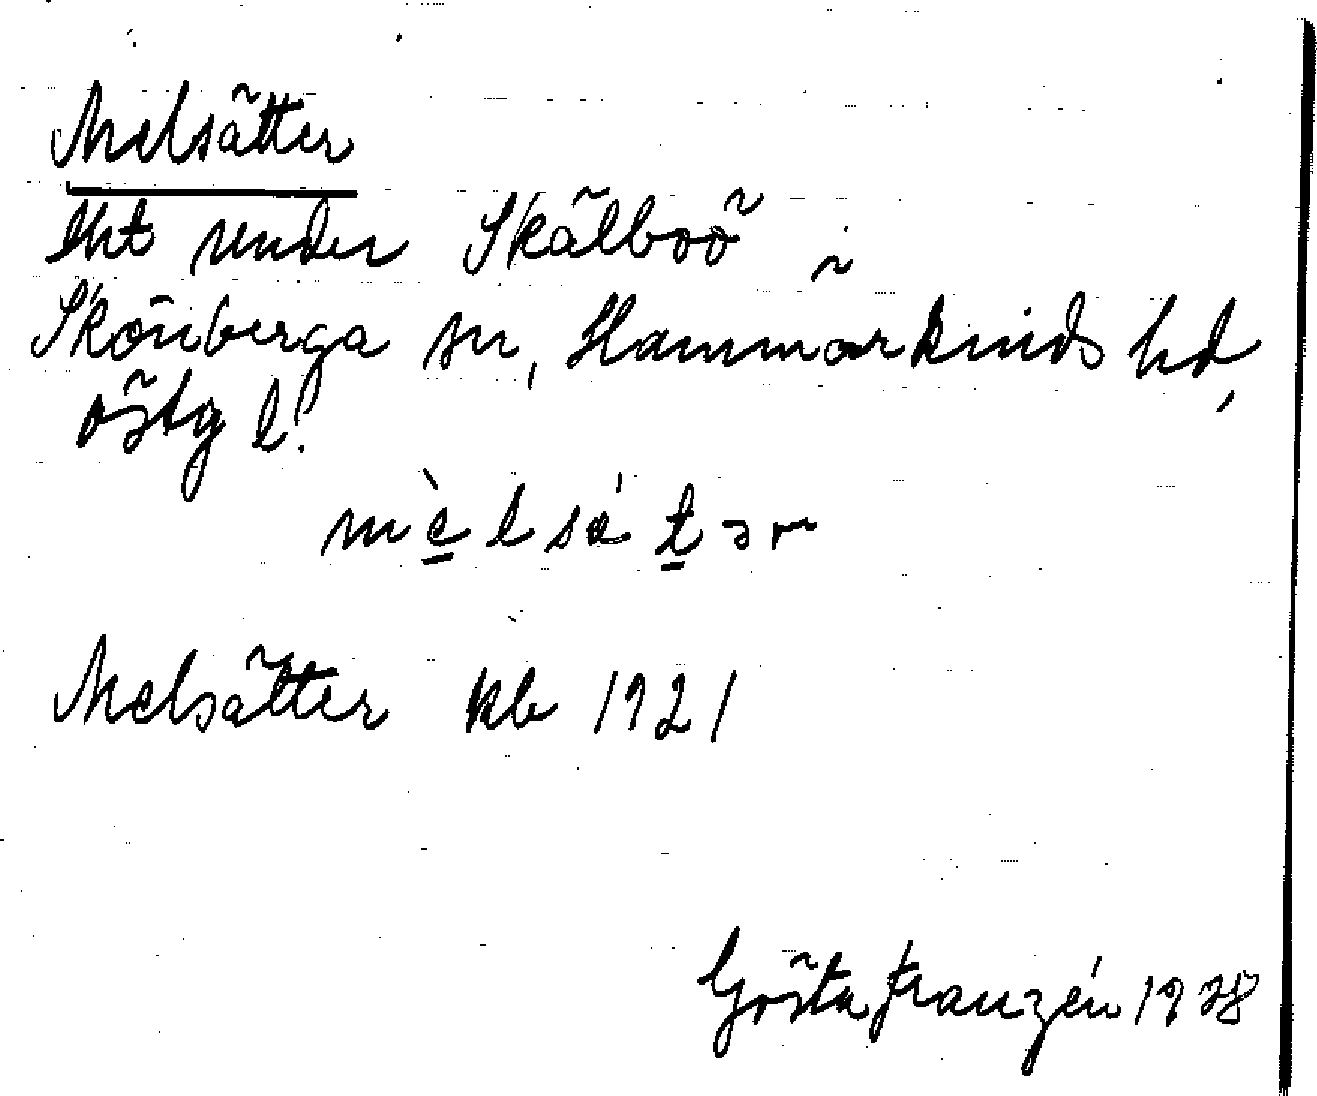 Melsätter
lht under Skälboö i
Skönberga sn, Hammarkinds hd,
Östg l.
mèlsátər
Melsätter kb 1921
Gösta Franzén 1928